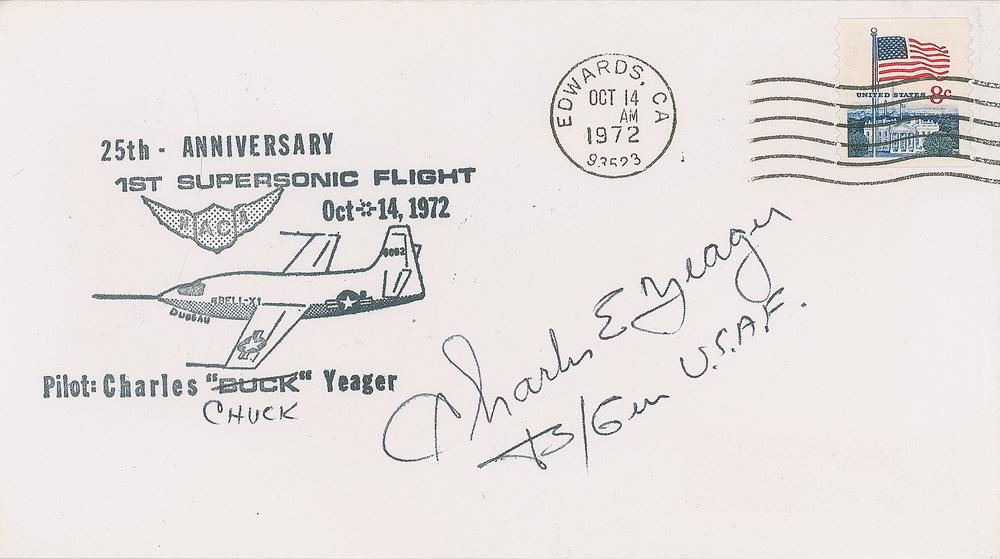 25th - ANNIVERSARY
1ST SUPERSONIC FLIGHT
Oct 14, 1972
NACA
6062
BELL-X1
DUBEAU
Pilot: Charles "BUCK" Yeager
CHUCK
EDWARDS, CA
OCT 14
AM
1972
93523
UNITED STATES 8c
Charles E Yeager
B/Gen U.S.A.F.